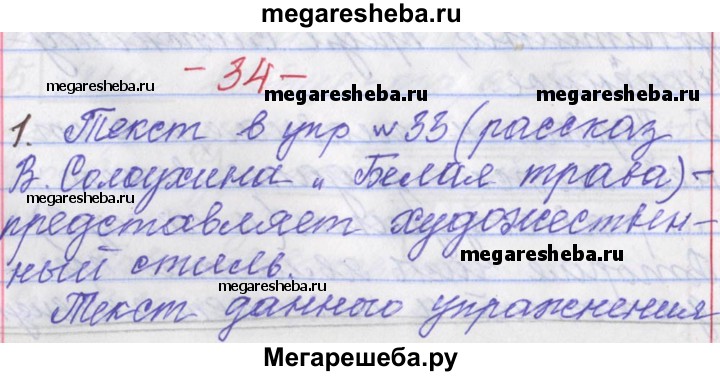 megaresheba.ru
- 34 -
megaresheba.ru megaresheba.ru megaresheba.ru
1. Текст в упр №33 (рассказ
В. Солоухина „ Белая трава) -
представляет художествен-
ный стиль. megaresheba.ru megaresheba.ru
megaresheba.ru
Текст данного упражнения
Мегарешеба.ру